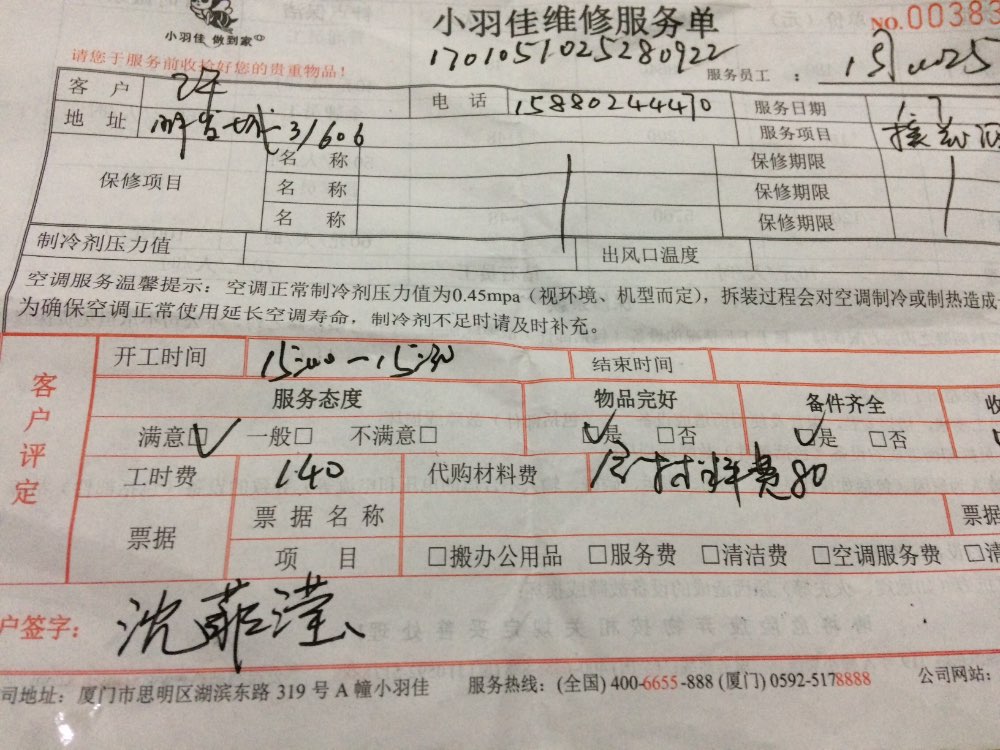 小羽佳维修服务单
NO.00383
小羽佳 做到家
1701051025280922
请您于服务前收拾好您的贵重物品!
服务员工:
客户
电话 15880244470 服务日期 1.7
地址 31606 服务项目
保修项目 名称 保修期限
名称 保修期限
名称 保修期限
制冷剂压力值 出风口温度
空调服务温馨提示:空调正常制冷剂压力值为0.45mpa(视环境、机型而定),拆装过程会对空调制冷或制热造成
为确保空调正常使用延长空调寿命,制冷剂不足时请及时补充。
客户评定
开工时间 15:00-15:30 结束时间
服务态度 物品完好 备件齐全
满意□ 一般□ 不满意□ □是 □否 □是 □否
工时费 140 代购材料费 80
票据 票据名称 票据
项目 □搬办公用品 □服务费 □清洁费 □空调服务费
户签字: 沈菲滢
司地址:厦门市思明区湖滨东路 319 号 A 幢小羽佳 服务热线:(全国) 400-6655-888 (厦门) 0592-5178888 公司网站: